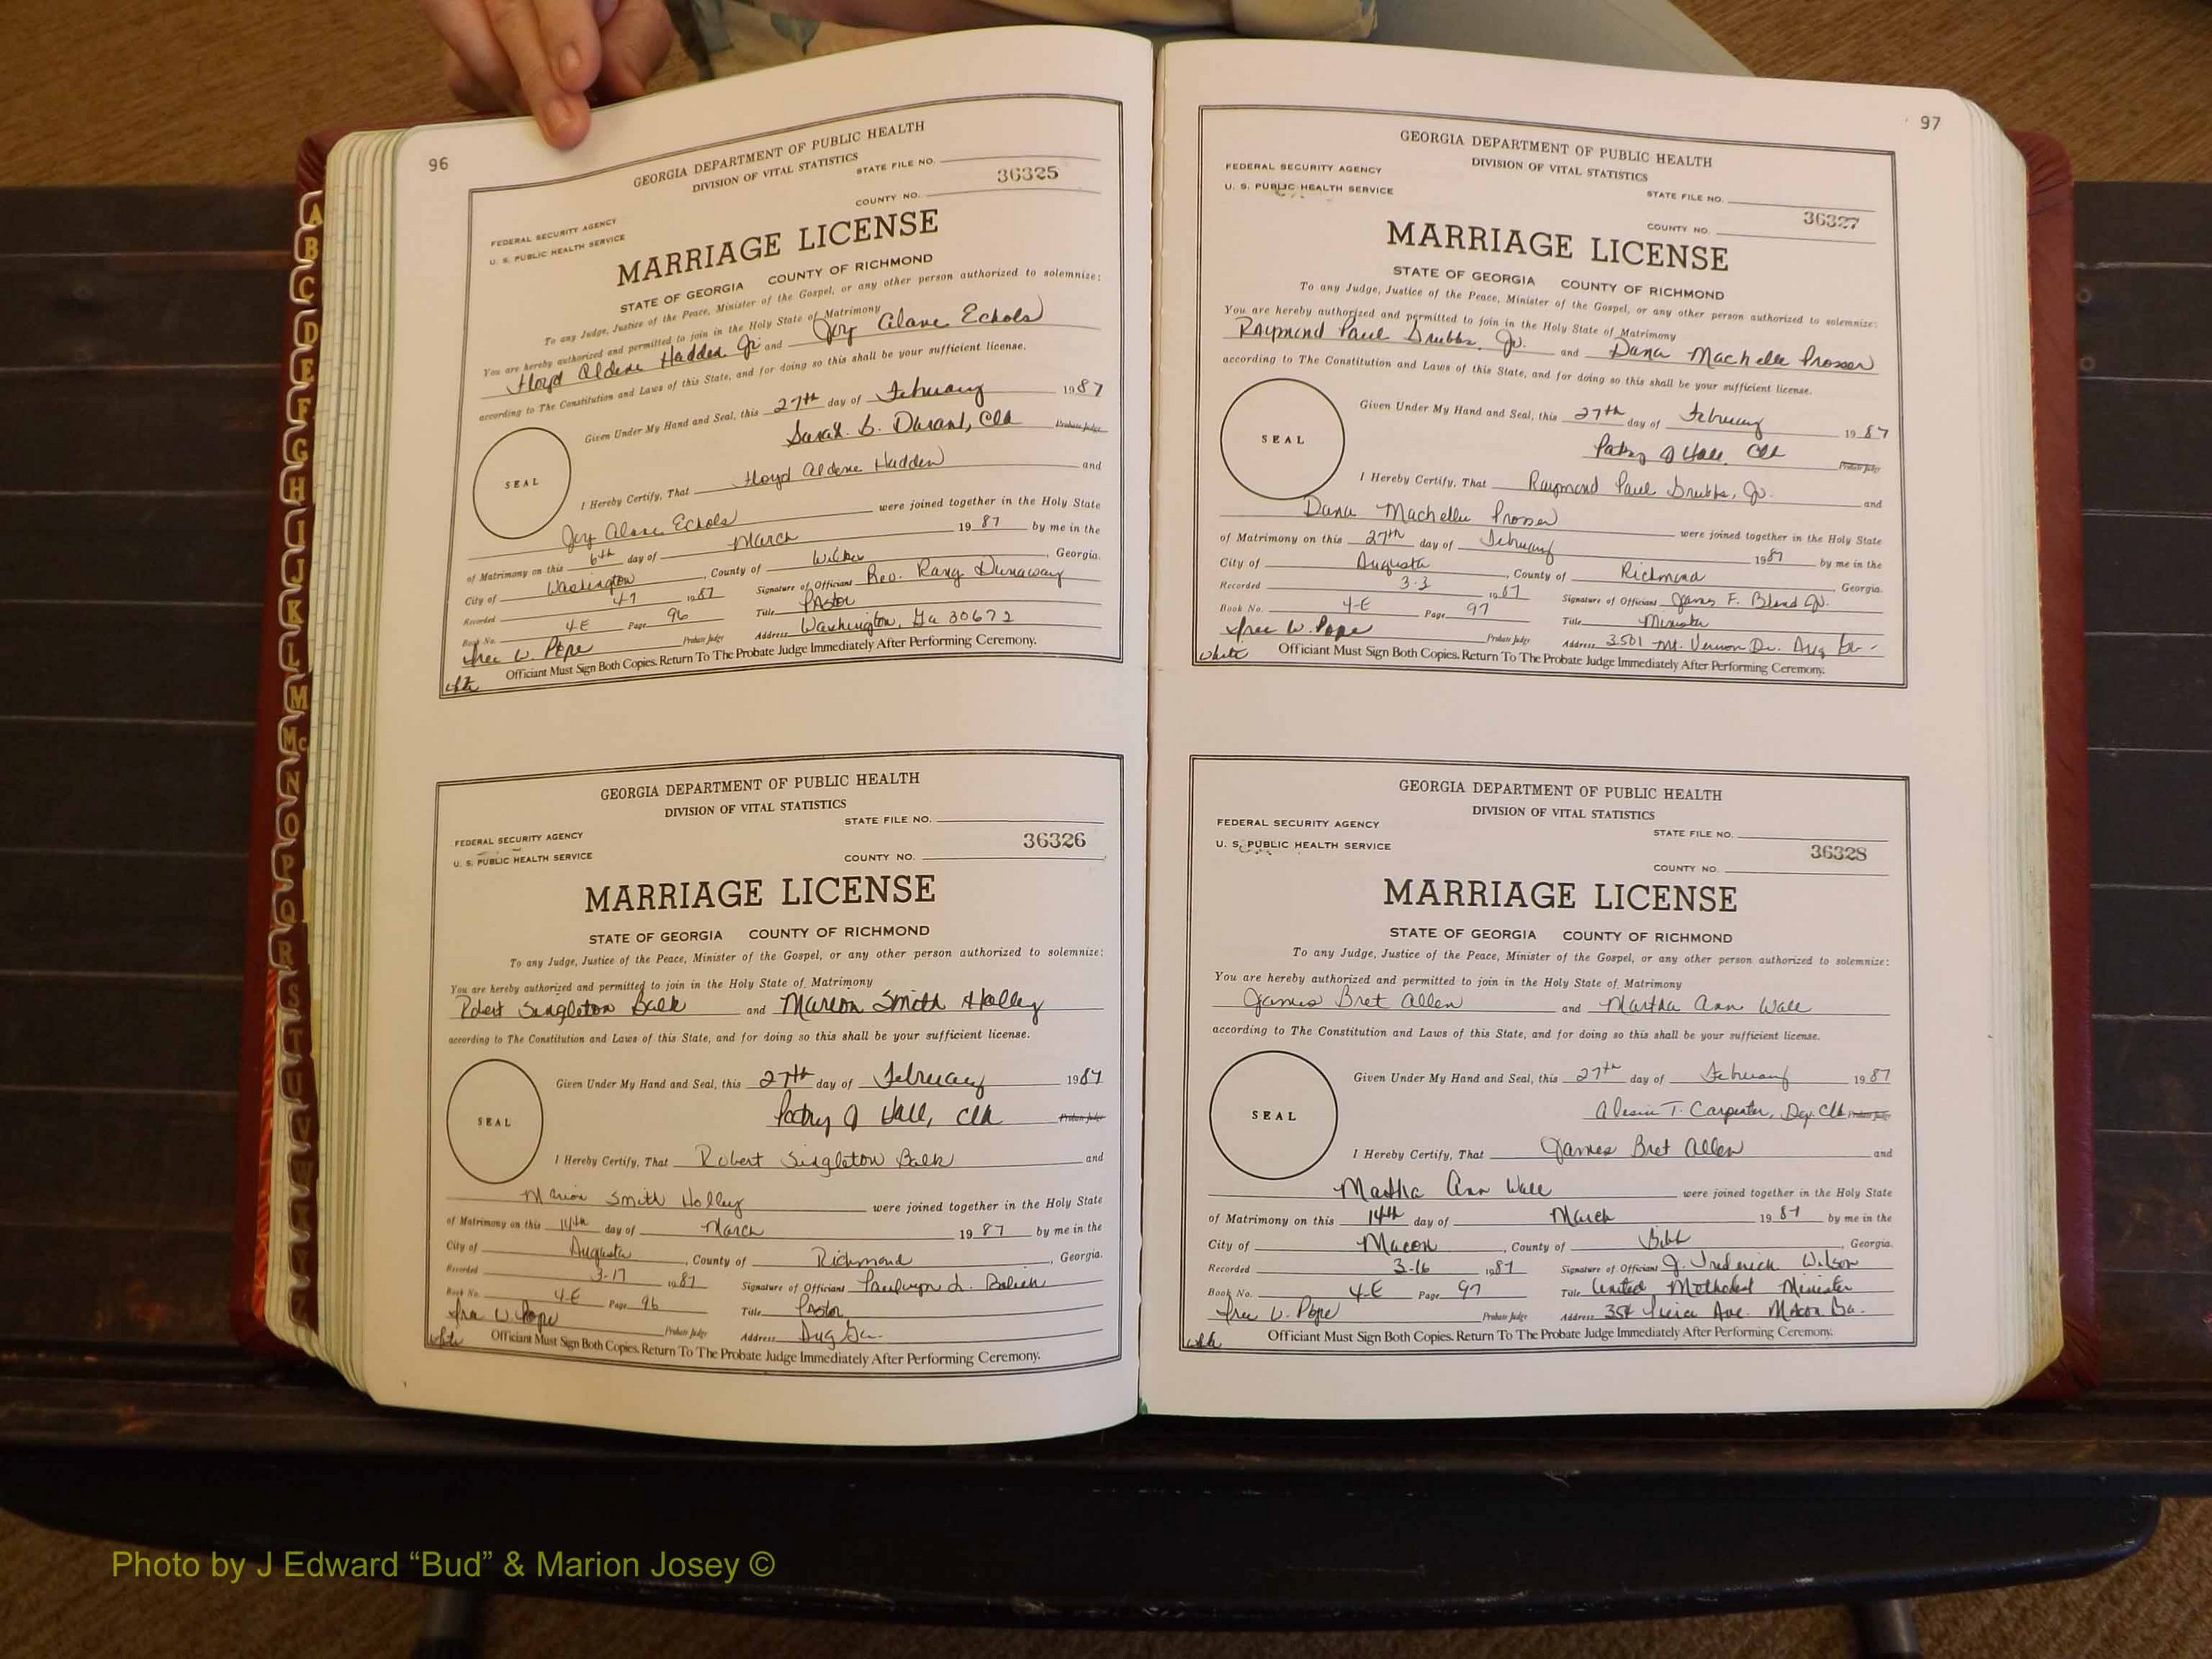 96
GEORGIA DEPARTMENT OF PUBLIC HEALTH
DIVISION OF VITAL STATISTICS
STATE FILE NO.
36325
COUNTY NO.
FEDERAL SECURITY AGENCY
U. S. PUBLIC HEALTH SERVICE
MARRIAGE LICENSE
STATE OF GEORGIA COUNTY OF RICHMOND
To any Judge, Justice of the Peace, Minister of the Gospel, or any other person authorized to solemnize:
You are hereby authorized and permitted to join in the Holy State of Matrimony
Floyd Aldene Hadden Jr. and Joy Alane Echols
according to The Constitution and Laws of this State, and for doing so this shall be your sufficient license.
Given Under My Hand and Seal, this 27th day of February 1987
Sarah B. Durant, Clk Probate Judge
SEAL
I Hereby Certify, That Floyd Aldene Hadden and
Joy Alane Echols were joined together in the Holy State
of Matrimony on this 6th day of March 1987 by me in the
City of Washington, County of Wilkes, Georgia.
Recorded 4-7 1987 Signature of Officiant Rev. Dunaway
Book No. 4-E Page 96 Title Pastor
W. Pope Probate Judge Address Washington, Ga 30673
white Officiant Must Sign Both Copies. Return To The Probate Judge Immediately After Performing Ceremony.
GEORGIA DEPARTMENT OF PUBLIC HEALTH
DIVISION OF VITAL STATISTICS
STATE FILE NO.
FEDERAL SECURITY AGENCY
36326
U. S. PUBLIC HEALTH SERVICE
COUNTY NO.
MARRIAGE LICENSE
STATE OF GEORGIA COUNTY OF RICHMOND
To any Judge, Justice of the Peace, Minister of the Gospel, or any other person authorized to solemnize:
You are hereby authorized and permitted to join in the Holy State of Matrimony
Robert Singleton Balk and Marion Smith Holley
according to The Constitution and Laws of this State, and for doing so this shall be your sufficient license.
Given Under My Hand and Seal, this 27th day of February 1987
Patsy J Hall, Clk Probate Judge
SEAL
I Hereby Certify, That Robert Singleton Balk and
Marion Smith Holley were joined together in the Holy State
of Matrimony on this 14th day of March 1987 by me in the
City of Augusta, County of Richmond, Georgia.
Recorded 3-17 1987 Signature of Officiant L.
Book No. 4-E Page 96 Title Pastor
W. Pope Probate Judge Address Aug Ga.
white Officiant Must Sign Both Copies. Return To The Probate Judge Immediately After Performing Ceremony.
97
GEORGIA DEPARTMENT OF PUBLIC HEALTH
DIVISION OF VITAL STATISTICS
FEDERAL SECURITY AGENCY
U. S. PUBLIC HEALTH SERVICE
STATE FILE NO.
36327
COUNTY NO.
MARRIAGE LICENSE
STATE OF GEORGIA COUNTY OF RICHMOND
To any Judge, Justice of the Peace, Minister of the Gospel, or any other person authorized to solemnize:
You are hereby authorized and permitted to join in the Holy State of Matrimony
Raymond Paul Grubbs, Jr. and Dana Machelle Prosser
according to The Constitution and Laws of this State, and for doing so this shall be your sufficient license.
Given Under My Hand and Seal, this 27th day of February 1987
Patsy J Hall, Clk Probate Judge
SEAL
I Hereby Certify, That Raymond Paul Grubbs, Jr. and
Dana Machelle Prosser were joined together in the Holy State
of Matrimony on this 27th day of February 1987 by me in the
City of Augusta, County of Richmond, Georgia.
Recorded 3-3 1987 Signature of Officiant James F. Bland Jr.
Book No. 4-E Page 97 Title Minister
W. Pope Probate Judge Address 3501 Mt. Vernon Dr. Aug Ga.
white Officiant Must Sign Both Copies. Return To The Probate Judge Immediately After Performing Ceremony.
GEORGIA DEPARTMENT OF PUBLIC HEALTH
DIVISION OF VITAL STATISTICS
FEDERAL SECURITY AGENCY
STATE FILE NO.
U. S. PUBLIC HEALTH SERVICE
36328
COUNTY NO.
MARRIAGE LICENSE
STATE OF GEORGIA COUNTY OF RICHMOND
To any Judge, Justice of the Peace, Minister of the Gospel, or any other person authorized to solemnize:
You are hereby authorized and permitted to join in the Holy State of Matrimony
James Bret Allen and Martha Ann Wall
according to The Constitution and Laws of this State, and for doing so this shall be your sufficient license.
Given Under My Hand and Seal, this 27th day of February 1987
T. Carpenter, Dep. Clk Probate Judge
SEAL
I Hereby Certify, That James Bret Allen and
Martha Ann Wall were joined together in the Holy State
of Matrimony on this 14th day of March 1987 by me in the
City of Macon, County of Bibb, Georgia.
Recorded 3-16 1987 Signature of Officiant J. Frederick Wilson
Book No. 4-E Page 97 Title United Methodist Minister
W. Pope Probate Judge Address Ave. Macon Ga.
white Officiant Must Sign Both Copies. Return To The Probate Judge Immediately After Performing Ceremony.
A
B
C
D
E
F
G
H
I
J
K
L
M
Mc
N
O
P
Q
R
S
T
U
V
Photo by J Edward “Bud” & Marion Josey ©